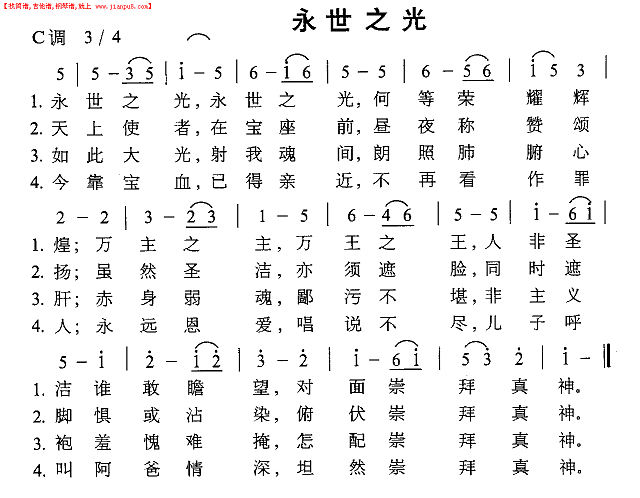 【找简谱,吉他谱,钢琴谱,就上 www.jianpu8.com】
永世之光
C调 3/4
5 | 5 - 3 5 | i - 5 | 6 - i 6 | 5 - 5 | 6 - 5 6 | i 5 3 |
1. 永 世 之 光,永 世 之 光,何 等 荣 耀 辉
2. 天 上 使 者,在 宝 座 前,昼 夜 称 赞 颂
3. 如 此 大 光,射 我 魂 间,朗 照 肺 腑 心
4. 今 靠 宝 血,已 得 亲 近,不 再 看 作 罪
2 - 2 | 3 - 2 3 | 1 - 5 | 6 - 4 6 | 5 - 5 | i - 6 i |
1. 煌; 万 主 之 主, 万 王 之 王,人 非 圣
2. 扬; 虽 然 圣 洁, 亦 须 遮 脸,同 时 遮
3. 肝; 赤 身 弱 魂, 鄙 污 不 堪,非 主 义
4. 人; 永 远 恩 爱, 唱 说 不 尽,儿 子 呼
5 - i | 2 - i 2 | 3 - 2 | i - 6 i | 5 3 2 | i - ‖
1. 洁 谁 敢 瞻 望, 对 面 崇 拜 真 神。
2. 脚 惧 或 沾 染, 俯 伏 崇 拜 真 神。
3. 袍 羞 愧 难 掩, 怎 配 崇 拜 真 神。
4. 叫 阿 爸 情 深, 坦 然 崇 拜 真 神。